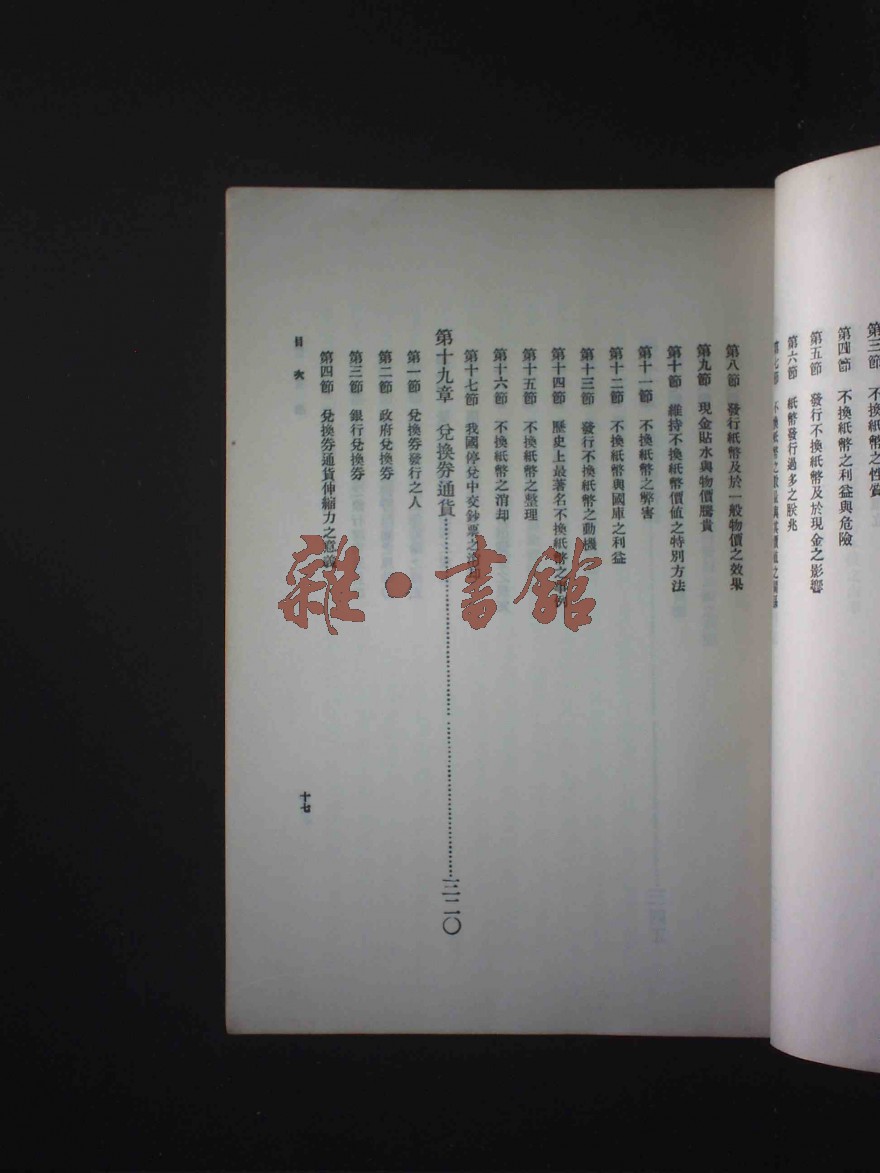 第三節 不換紙幣之性質
第四節 不換紙幣之利益與危險
第五節 發行不換紙幣及於現金之影響
第六節 紙幣發行過多之朕兆
第七節 不換紙幣之數量與其價值之關係
第八節 發行紙幣及於一般物價之效果
第九節 現金貼水與物價騰貴
第十節 維持不換紙幣價值之特別方法
第十一節 不換紙幣之弊害
第十二節 不換紙幣與國庫之利益
第十三節 發行不換紙幣之動機
第十四節 歷史上最著名不換紙幣之事例
第十五節 不換紙幣之整理
第十六節 不換紙幣之消却
第十七節 我國停兌中交鈔票之消却
第十九章 兌換券通貨……三二〇
第一節 兌換券發行之人
第二節 政府兌換券
第三節 銀行兌換券
第四節 兌換券通貨伸縮力之意義
目次
十七
雜·書館